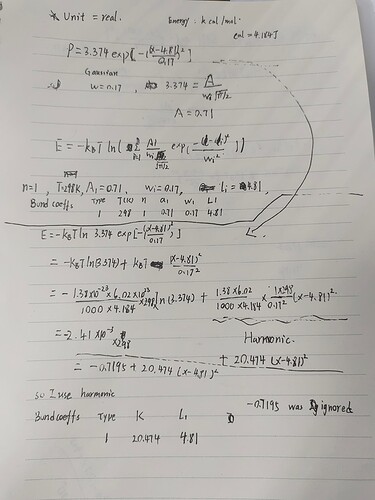 * Unit = real. Energy: kcal/mol.
cal = 4.184J
P = 3.374 exp[-(\frac{x-4.81}{0.17})^2]
Gaussian
w = 0.17, 3.374 = \frac{A}{w_i\sqrt{π/2}}
A = 0.71
E = -k_BT ln( \frac{A_1}{w_i\sqrt{π/2}} exp(-\frac{(x-x_i)^2}{w_i^2}))
n=1, T=298K, A_1=0.71, w_i=0.17, L_i=4.81,
Bund coeffs Type T(K) n a_1 w_1 L1
1 298 1 0.71 0.17 4.81
E = -k_BT ln 3.374 exp[-(\frac{x-4.81}{0.17})^2]
= -k_BT ln(3.374) + k_BT \frac{(x-4.81)^2}{0.17^2}
= -\frac{1.38×10^{-23}×6.02×10^{23}}{1000×4.184}×298 ln(3.374) + \frac{1.38×6.02}{1000×4.184}×\frac{1×298}{0.17^2}(x-4.81)^2.
= -2.41×10^{-3} ×298 Harmonic.
+ 20.474(x-4.81)^2
= -0.7195 + 20.474 (x-4.81)^2
so I use harmonic -0.7195 was ignored
Bund coeffs Type K L1
1 20.474 4.81